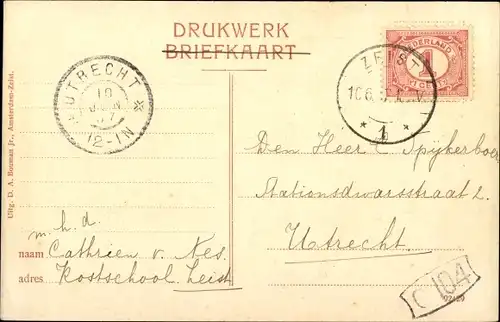 DRUKWERK
BRIEFKAART
NEDERLAND
1
CENT
ZEIST
10 6
1
UTRECHT
10
12-1N
Uitg. D. A. Bouman Jr., Amsterdam-Zeist.
Den Heer C. Spijkerboer
Stationsdwarsstraat 2.
Utrecht.
m. h. d.
naam Cathrien v. Nes.
adres Kostschool Zeist
C 104